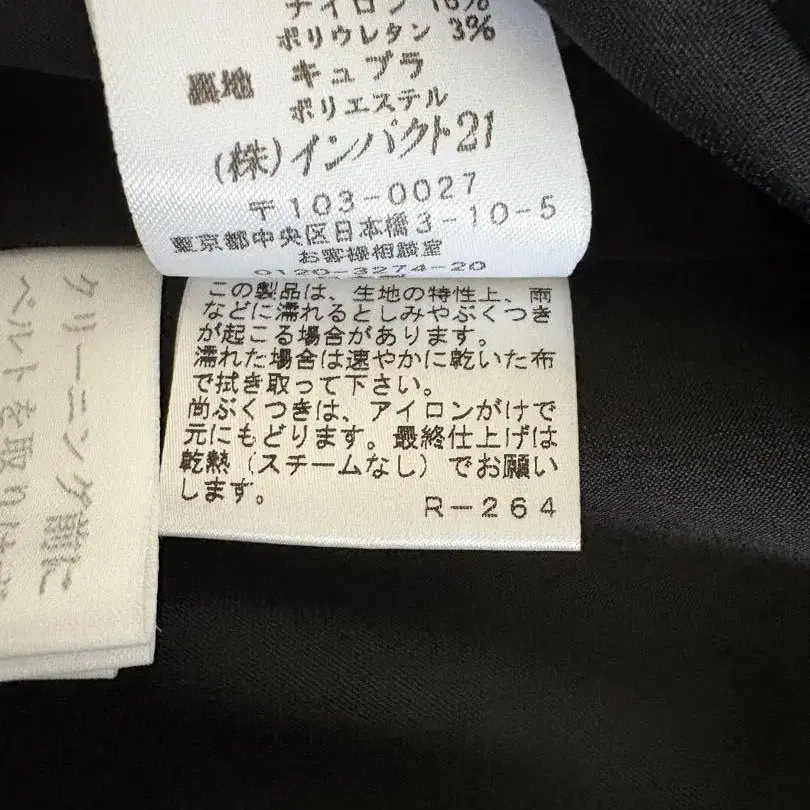 ナイロン 16%
ポリウレタン 3%
裏地 キュプラ
ポリエステル
(株)インパクト21
〒103-0027
東京都中央区日本橋3-10-5
お客様相談室
0120-3274-20
この製品は、生地の特性上、雨
などに濡れるとしみやぶくつき
が起こる場合があります。
濡れた場合は速やかに乾いた布
で拭き取って下さい。
尚ぶくつきは、アイロンがけで
元にもどります。最終仕上げは
乾熱(スチームなし)でお願い
します。
R-264
クリーニング前に
ベルトを取り